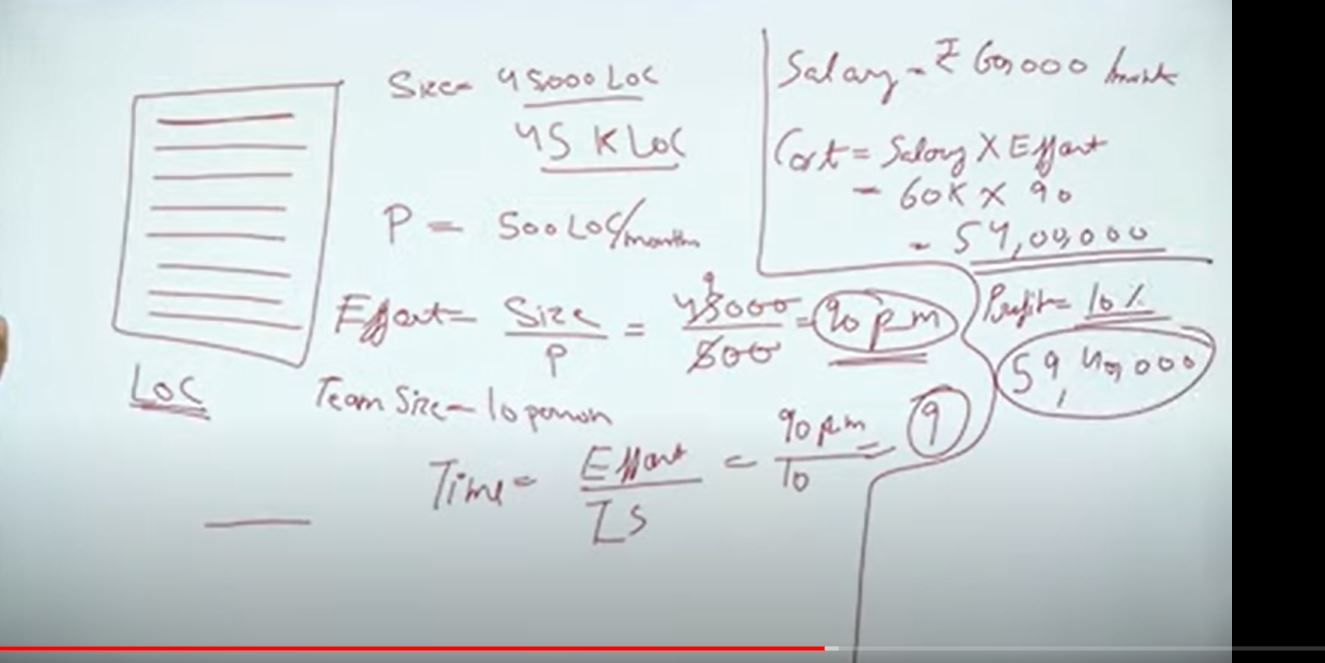 Size = 45000 LOC
45 K LOC
P = 500 LOC/month
Effort = Size / P = 45000 / 500 = 90 pm
9
LOC
Team Size - 10 person
Time = Effort / TS = 90 pm / 10 = 9
Salary = ₹ 60,000 / month
Cost = Salary X Effort
= 60K X 90
= 54,00,000
Profit = 10%
59,40,000